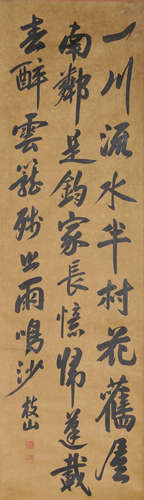 一川流水半村花舊屋
南鄰是釣家長憶歸篷載
春醉雲籠殘照雨鳴沙
枝山